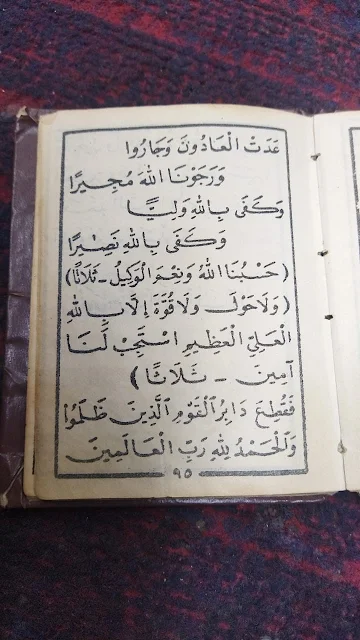 عَدَتْ الْعَادُونَ وَجَارُوا
وَرَجَوْنَا اللهَ مُجِيرًا
وَكَفَى بِاللهِ وَلِيًّا
وَكَفَى بِاللهِ نَصِيْرًا
(حَسْبُنَا اللهُ وَنِعْمَ الْوَكِيلُ - ثَلَاثًا)
(وَلَاحَوْلَ وَلَاقُوَّةَ إِلَّابِاللهِ
الْعَلِيِّ الْعَظِيمِ اسْتَجِبْ لَنَا
آمِينَ - ثَلَاثًا)
فَقُطِعَ دَابِرُ الْقَوْمِ الَّذِينَ ظَلَمُوا
وَالْحَمْدُ لِلهِ رَبِّ الْعَالَمِينَ
٩٥